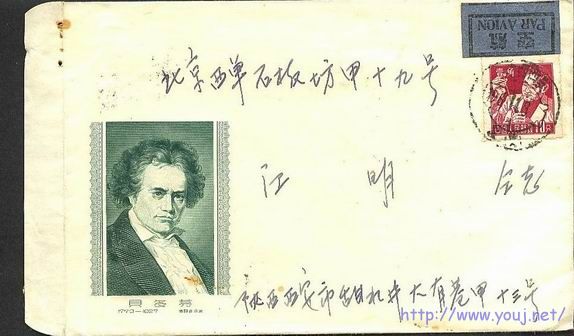 航空
PAR AVION
北京西单石板坊甲十九号
江 明 同志
貝多芬
1770—1827
陕西西安市
大有巷甲十三号
http://www.youj.net/